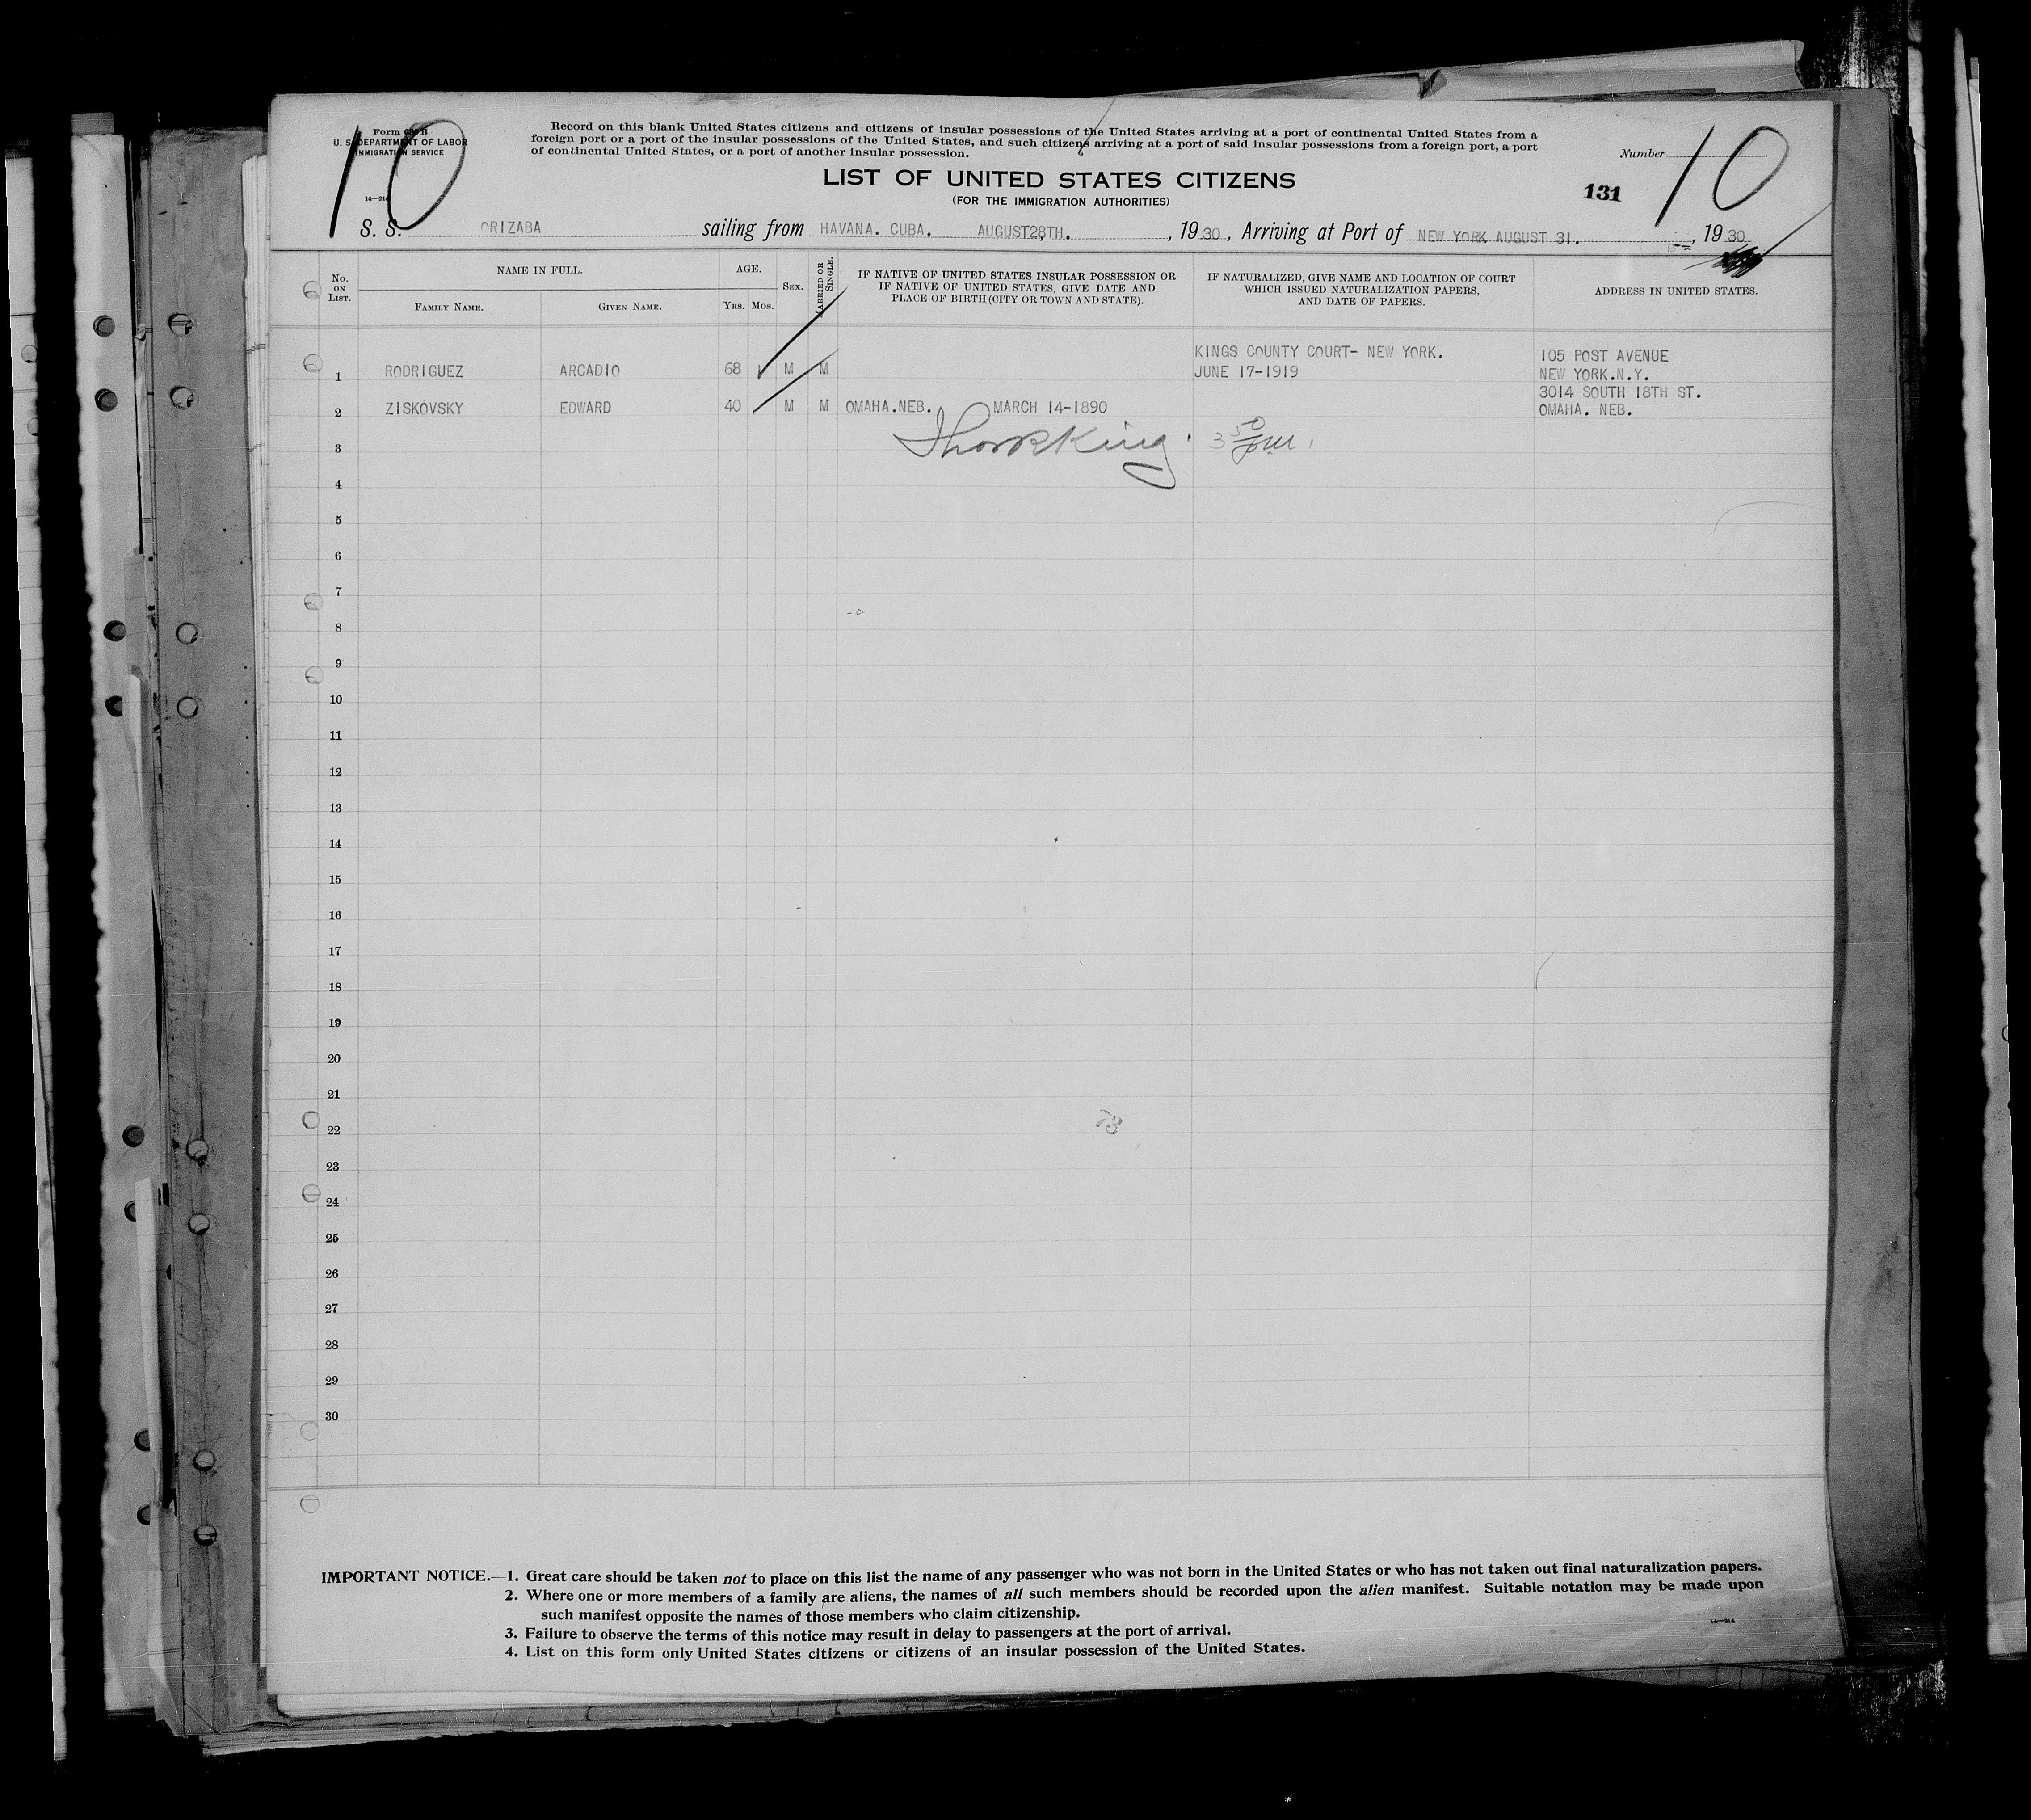 10
Form 630 B
U. S. DEPARTMENT OF LABOR
IMMIGRATION SERVICE
14—214
Record on this blank United States citizens and citizens of insular possessions of the United States arriving at a port of continental United States from a
foreign port or a port of the insular possessions of the United States, and such citizens arriving at a port of said insular possessions from a foreign port, a port
of continental United States, or a port of another insular possession.
Number 10
LIST OF UNITED STATES CITIZENS
(FOR THE IMMIGRATION AUTHORITIES)
131
S. S. ORIZABA sailing from HAVANA. CUBA. AUGUST28TH. , 1930 , Arriving at Port of NEW YORK AUGUST 31. , 1930
No. ON LIST.
NAME IN FULL.
FAMILY NAME.
GIVEN NAME.
AGE.
YRS. MOS.
SEX.
MARRIED OR SINGLE.
IF NATIVE OF UNITED STATES INSULAR POSSESSION OR
IF NATIVE OF UNITED STATES, GIVE DATE AND
PLACE OF BIRTH (CITY OR TOWN AND STATE).
IF NATURALIZED, GIVE NAME AND LOCATION OF COURT
WHICH ISSUED NATURALIZATION PAPERS,
AND DATE OF PAPERS.
ADDRESS IN UNITED STATES.
KINGS COUNTY COURT- NEW YORK. 105 POST AVENUE
1 RODRIGUEZ ARCADIO 68 M M JUNE 17-1919 NEW YORK.N.Y.
3014 SOUTH 18TH ST.
2 ZISKOVSKY EDWARD 40 M M OMAHA.NEB. MARCH 14-1890 OMAHA. NEB.
3 King 3 50
4
5
6
7
8
9
10
11
12
13
14
15
16
17
18
19
20
21
22
73
23
24
25
26
27
28
29
30
IMPORTANT NOTICE.—1. Great care should be taken not to place on this list the name of any passenger who was not born in the United States or who has not taken out final naturalization papers.
2. Where one or more members of a family are aliens, the names of all such members should be recorded upon the alien manifest. Suitable notation may be made upon
such manifest opposite the names of those members who claim citizenship.
3. Failure to observe the terms of this notice may result in delay to passengers at the port of arrival.
4. List on this form only United States citizens or citizens of an insular possession of the United States.
14—214